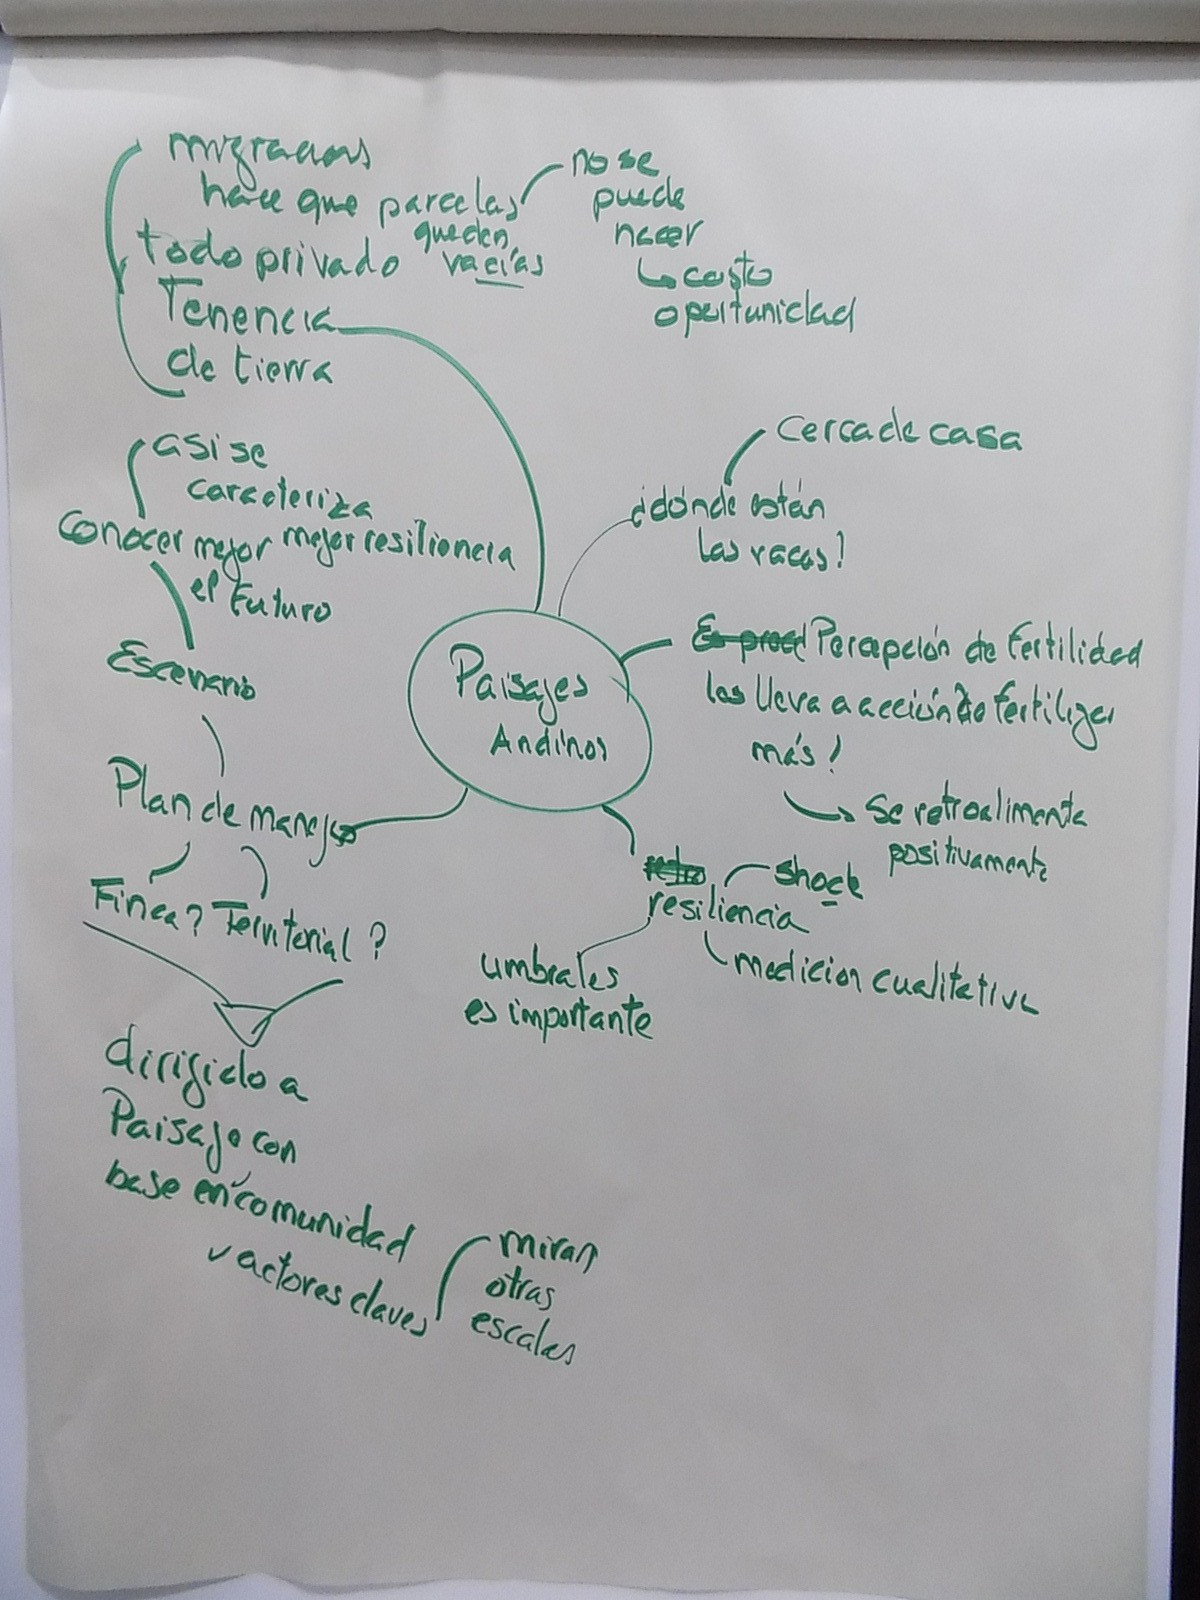 migracions
hace que parcelas
queden
vacías
no se
puede
hacer
costo
oportunidad
todo privado
Tenencia
de tierra
asi se
caracteriza
Conocer mejor mejor resiliencia
el Futuro
Escenario
Plan de manejo
Finca? Territorial?
dirigido a
Paisaje con
base en comunidad
y actores claves
miran
otras
escalas
Paisajes
Andinos
cerca de casa
¿dónde están
las vacas!
Es proced Percepción de Fertilidad
las lleva a acción de fertilizar
más!
Se retroalimenta
positivamente
retro
shock
resiliencia
medicion cualitativa
umbrales
es importante